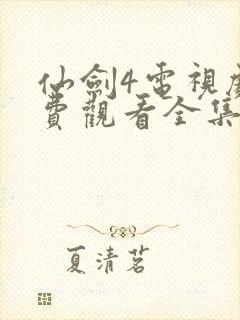 仙劍4電視劇
費觀看全集
夏清茗